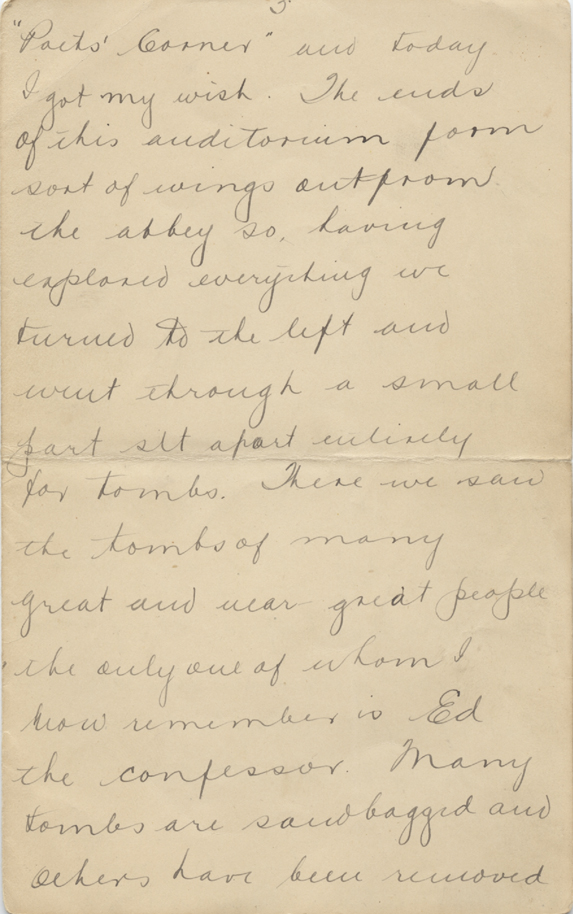 3
"Poets' Corner" and today
I got my wish. The ends
of this auditorium form
sort of wings out from
the abbey so, having
explored everything we
turned to the left and
went through a small
part set apart entirely
for tombs. There we saw
the tombs of many
great and near great people
the only one of whom I
now remember is Ed
the confessor. Many
tombs are sandbagged and
others have been removed